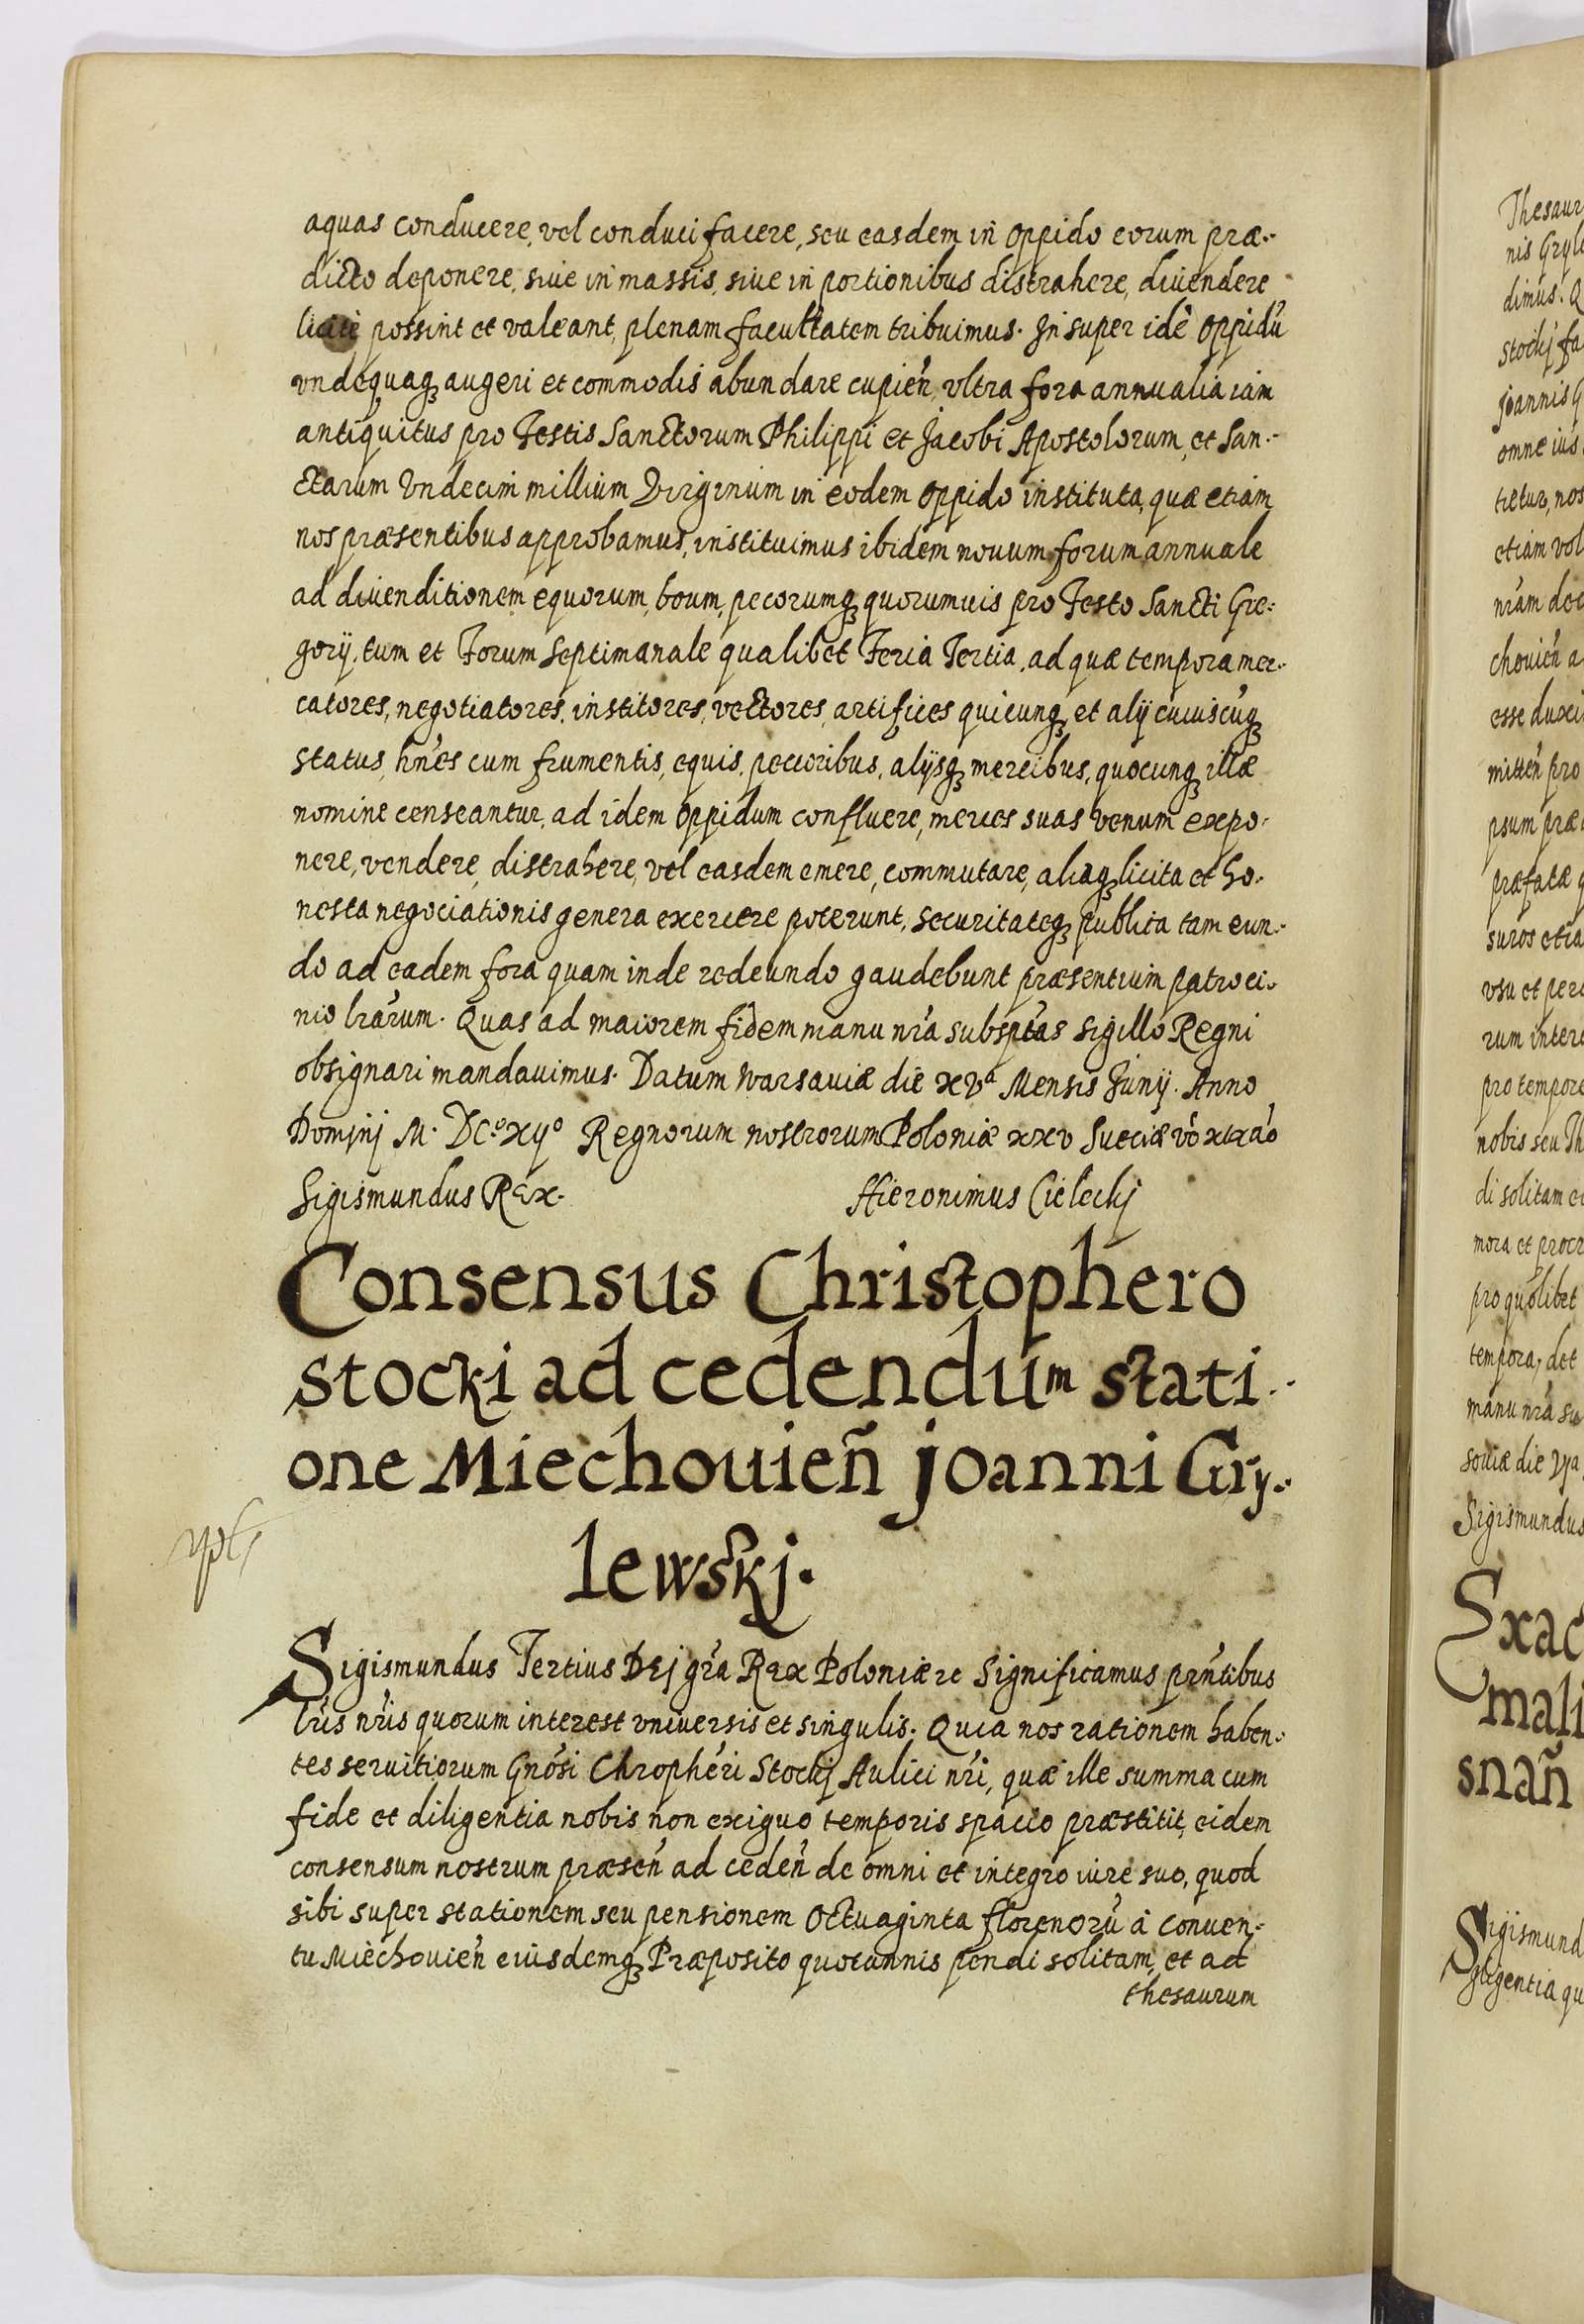 aquas conducere, vel conduci facere, seu easdem in oppido eorum præ-
dicto deponere, siue in massis, siue in portionibus distrahere, diuendere
licitè possint et valeant, plenam facultatem tribuimus. Insuper idē oppidū
vndequaqꝫ augeri et commodis abundare cupień, vltra fora annualia iam
antiquitus pro Festis Sanctorum Philippi et Jacobi Apostolorum, et San-
ctarum Vndecim millium Virginum in eodem oppido instituta, quæ etiam
nos præsentibus approbamus, instituimus ibidem nouum forum annuale
ad diuenditionem equorum, boum, pecorumqꝫ quorumuis pro Festo Sancti Gre-
gorij, tum et Forum Septimanale qualibet Feria Tertia, ad quæ tempora mer-
catores, negotiatores, institores, vectores, artifices quicunqꝫ et alij cuiuscūqꝫ
status, hnēs cum frumentis, equis, pecoribus, alijsqꝫ mercibus, quocunqꝫ illæ
nomine censeantur, ad idem oppidum confluere, merces suas venum expo-
nere, vendere, distrahere, vel easdem emere, commutare, aliaqꝫ licita et ho-
nesta negociationis genera exercere poterunt, securitateqꝫ publica tam eun-
do ad eadem fora quam inde redeundo gaudebunt præsentium patroci-
nio lrārum. Quas ad maiorem fidem manu nrā subsptās sigillo Regni
obsignari mandauimus. Datum Warsauiæ die xvª Mensis Junij. Anno
Dominj M. DC.º xijº Regnorum nostrorum Poloniæ xxv Sueciæ vò xixāo
Sigismundus Rex.
Hieronimus Cieleckj
Consensus Christophero
stocki ad cedendum stati-
one Miechouień Joanni Gry-
lewskj.
Sigismundus Tertius Dej grā Rex Poloniæ rc Significamus prntibus
lris nris quorum interest vniuersis et singulis. Quia nos rationem haben-
tes seruitiorum Gnosi Chropheri Stockj Aulici nri, quæ ille summa cum
fide et diligentia nobis non exiguo temporis spacio præstitit, eidem
consensum nostrum præseń ad cedeń de omni et integro iure suo, quod
sibi super stationem seu pensionem octuaginta florenorū à conuen-
tu Miechouień eiusdemqꝫ Præposito quotannis pendi solitam, et ad
thesaurum
Thesaur
nis Gryl
dimus. Q
Stockj fa
Joannis G
omne ius
tietur, nos
etiam vol
nram dec
chouień a
esse duxi
mitteń pro
psum præ
præfatæ q
suros etia
vsu et per
rum inter
pro tempore
nobis seu Th
di solitam e
mora et procr
pro quolibet
tempora, det
manu nrā su
souiæ die
Sigismundus
Exac
mali
snań
Sigismund
ligentia qu